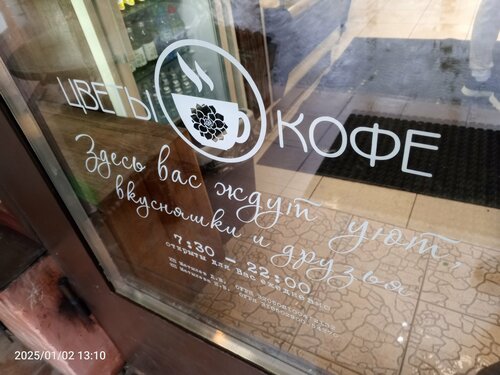 ЦВЕТЫ КОФЕ
Здесь вас ждут уют,
вкусняшки и друзья
7:30 - 22:00
открыты для Вас ежедневно
2025/01/02 13:10